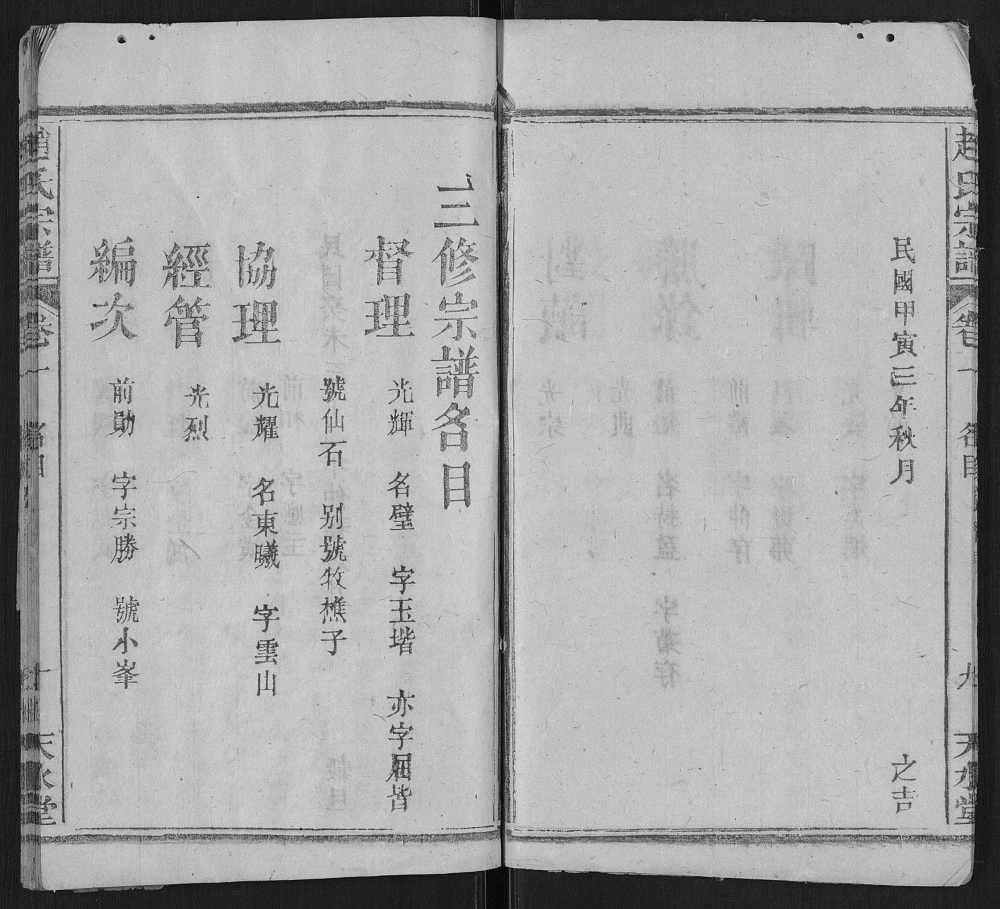 趙氏宗譜 卷一 名目 九 天水堂
民國甲寅三年秋月 之吉
三修宗譜名目
督理 光輝 名璧 字玉堦 亦字屆皆
號仙石 别號牧樵子
協理 光耀 名東曦 字雲山
經管 光烈
編次 前勛 字宗勝 號小峯
趙氏宗譜 卷一 名目 十 天水堂